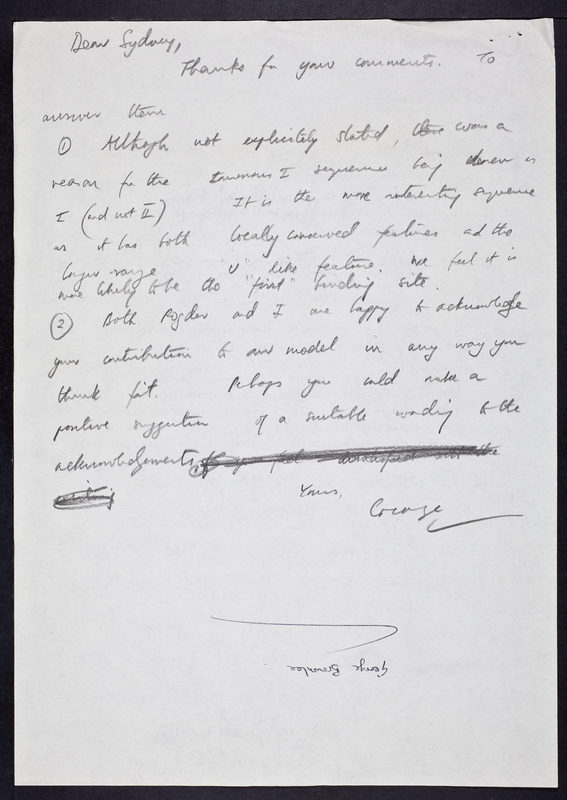 Dear Sydney,
Thanks for your comments. To
answer them
① Although not explicitely stated, there was a
reason for the sequence being chosen as
I (and not II) It is the more interesting sequence
as it has both locally conserved features and the
longer range "U" like feature. We feel it is
more likely to be the "first" binding site.
② Both and I are happy to acknowledge
your contribution to our model in any way you
think fit. Perhaps you could make a
positive suggestion of a suitable wording to the
acknowledgements
Yours,
George
George Brownlee